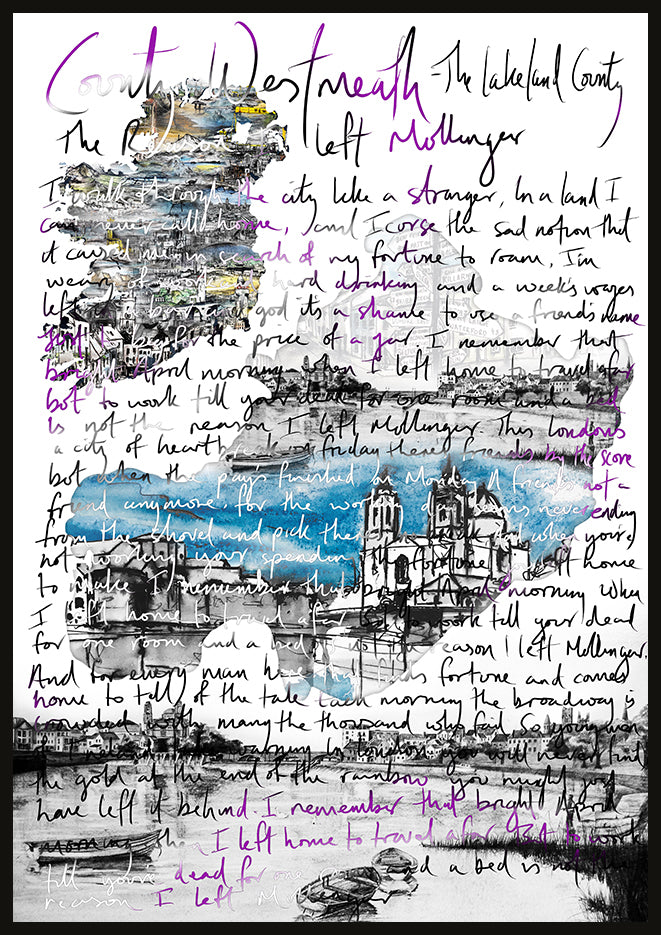 County Westmeath -The Lakeland County
The Reason I left Mollinger
I walk through the city like a stranger, In a land I
can never call home, and I corse the sad notion that
it caused me in search of my fortune to roam, I'm
weary of work hard drinking and a week's wages
left god its a shame to use a friends name
for the price of a jar. I remember that
bright April morning when I left home to travel afar
bot to work till your dead for one room and a bed
is not the reason I left Mollinger. This londons
a city of heartbreak on friday theres friends by the score
but when the pay's finished on Monday A friends not a
friend anymore, for the working day seems never ending
from the shovel and pick break and when your
not working your spending the fortune left home
to make. I remember that bright April morning when
I left home to travel afar bot to work till your dead
for one room and a bed is not the reason I left Mollinger.
And for every man here that finds fortune and comes
home to tell of the tale Each morning the broadway is
crowded with many the thousand who fail. So young men
in London you will never find
the gold at the end of the rainbow you might just
have left it behind. I remember that bright April
morning when I left home to travel afar But to work
till youre dead for one and a bed is not the
reason I left